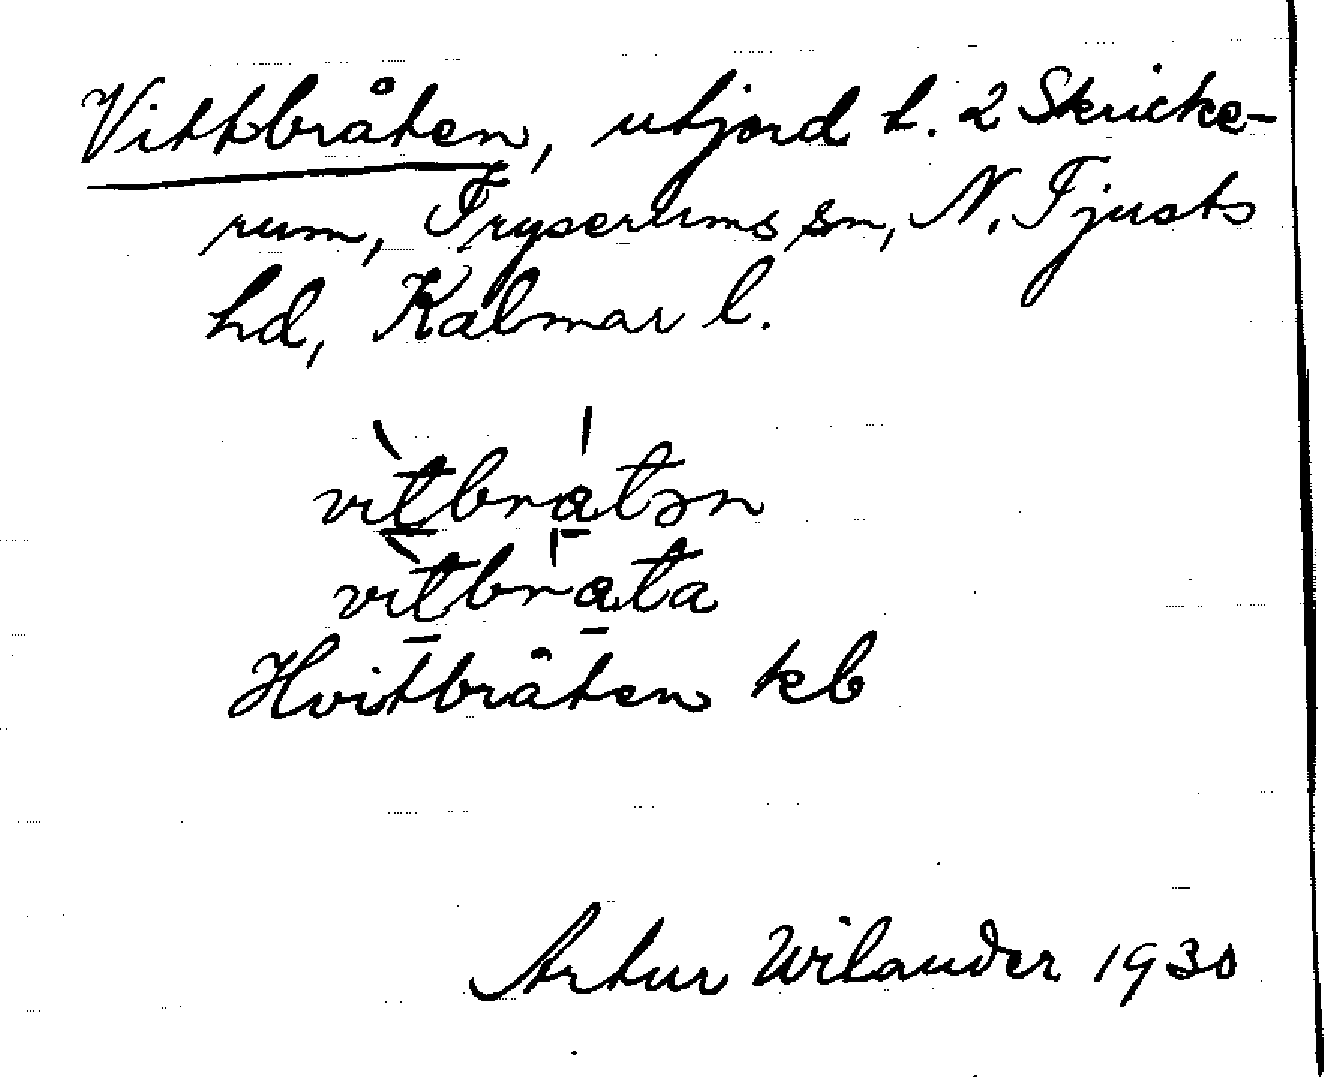 Vittbråten, utjord t. 2 Skricke-
rum, Tryserums sn, N. Tjusts
hd, Kalmar l.
vìtbråtən
vìtbråta
Hvitbråten kb
Artur Wilander 1930